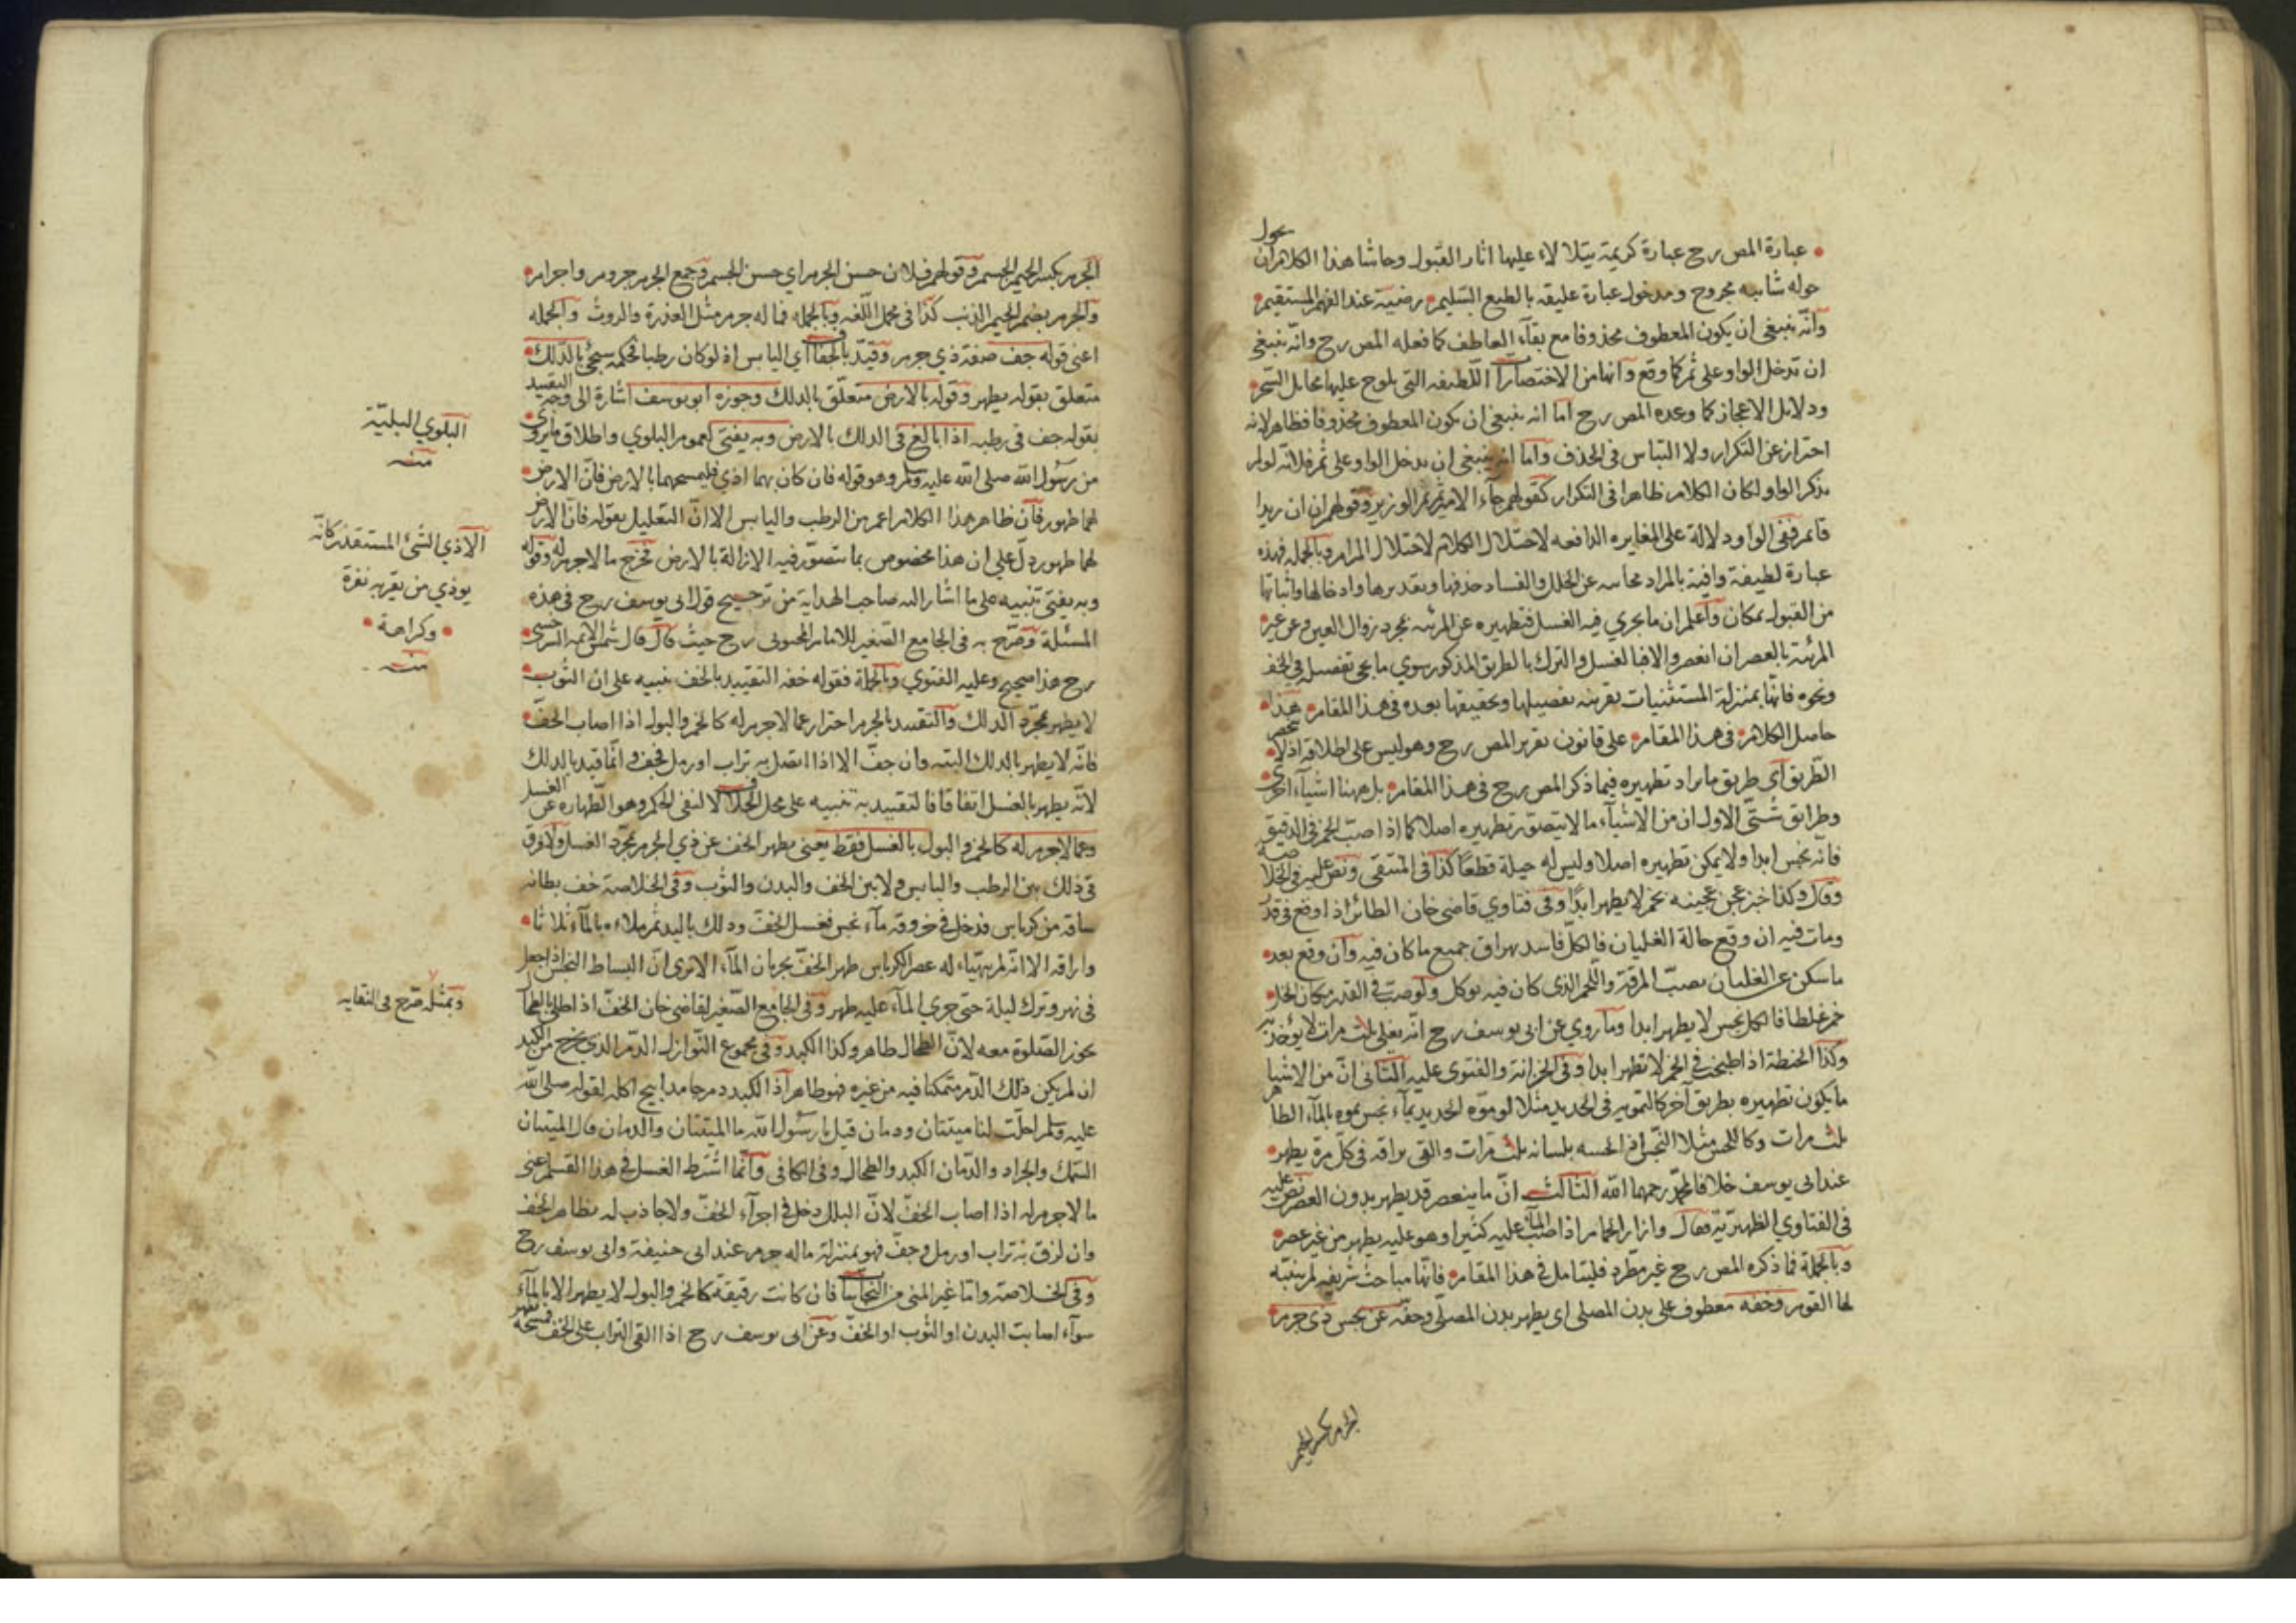 عبارة المص رح عبارة كريمة يتلألاء عليها اثار القبول وحاشا هذا الكلام ان يحول
حوله شايبه مجروح ومدخول عبارة عليقه بالطبع السليم رضية عند الفهم المستقيم
وانّه ينبغي ان يكون المعطوف محذوفا مع بقاء العاطف كما فعله المص رح وانّه ينبغي
ان تدخل الواو على ثم كما وقع وانها من الاختصارات اللطيفه التي يلوح عليها مخايل السحر
ودلايل الاعجاز كما وعده المص رح اما انه ينبغي ان يكون المعطوف محذوفا فظاهر لانه
احتراز عن التكرار ولا التباس في الحذف واما انه ينبغي ان يدخل الواو على ثم فلانّه لو لم
يذكر الواو لكان الكلام ظاهرا في التكرار كقولهم جاء الامير ثم الوزير وقولهم ان ان زيدا
قائم ففي الواو دلالة على المغايره الدافعه لاختلال الكلام لاختلال المرام وبالجمله فهذه
عبارة لطيفة وافية بالمراد محاسه عن الخلل والفساد حذفها وتقديرها وادخالها واثباتها
من القبول بمكان واعلم ان ما يجري فيه الغسل فتطهيره عن المرئيه بمجرد زوال العين وعن غير
المرئية بالعصر ان انعصر والا فبالغسل والترك بالطريق المذكور سوي ما يجي تفصيله في الخف
ونحوه فانها بمنزلة المستثنيات بقرينه تفصيلها وتحقيقها بعده في هذا المقام هذا
حاصل الكلام في هذا المقام على قانون تقرير المص رح وهو ليس على اطلاقه اذ لا ينحصر
الطّريق اي طريق ما يراد تطهيره فيما ذكر المص رح في هذا المقام بل ههنا اشياء اخرى
وطرائق شتّى الاول ان من الاشياء ما لا يتصور تطهيره اصلا كما اذا صبّ الخمر في الدقيق
فانّه نجس ابدا ولا يمكن تطهيره اصلا وليس له حيلة قطعًا كذا في المنتقى ونصّ عليه في الخلاصه
وقال وكذا خبز عجن عجينه بخمر لا يطهر ابدًا وفي فتاوي قاضي خان الطائر اذا وقع في قدر
ومات فيه ان وقع حالة الغليان فالكلّ فاسد يهراق جميع ما كان فيه وان وقع بعد
ما سكن عن الغليان يصبّ المرقة واللّحم الذي كان فيه يوكل ولو صب في القدر مكان الخل
خمر غلطا فالكل نجس لا يطهر ابدا وما روي عن ابي يوسف رح انّه يغلي ثلث مرات لا يؤخذ به
وكذا الحنطة اذا طبخت في الخمر لا تطهر ابدا وفي الخزانة والفتوى عليه الثاني انّ من الاشيا
ما يكون تطهيره بطريق آخر كالتمويه في الحديد مثلا لو موّه الحديد بماء نجس يموه بالماء الطاهر
ثلث مرات وكاللحس مثلا النّجس اذا لحسه بلسانه ثلث مرّات والقى بزاقه في كلّ مرّة يطهر
عند ابي يوسف خلافا لمحمّد رحمهما الله الثالث انّ ما ينعصر قد يطهر بدون العصر نصّ عليه
في الفتاوي الظهيريّة فقال وازار الحمام اذا صبّ الماء عليه كثيرا وهو عليه يطهر من غير عصر
وبالجملة فما ذكره المص رح غير مطّرد فليتامل في هذا المقام فانّها مباحث شريفه لم يتنبّه
لها القوم وخفه معطوف على بدن المصلي اي يطهر بدن المصلّى وخفّه عن نجس ذي جرم
الجرم بكسر الجيم
الجرم بكسر الجيم الجسم وقولهم فلان حسن الجرم اي حسن الجسم وجمع الجرم جروم واجرام
والجرم بضم الجيم الذنب كذا في مجمل اللّغه وبالجمله فما له جرم مثل العذرة والروث والجمله
اعني قوله جف صفة ذي جرم وقيّد بالجفاف اي اليابس اذ لو كان رطبا فحكمه سيجئ بالدّلك
متعلق بقوله يطهر وقوله بالارض متعلّق بالدلك وجوزه ابو يوسف اشارة الى وجه التقييد
بقوله جف في رطبه اذا بالغ في الدلك بالارض وبه يفتى لعموم البلوي واطلاق ما يروى
من رسول الله صلى الله عليه وسلم وهو قوله فان كان بهما اذي فليمسحهما بالارض فانّ الارض
لهما طهور فان ظاهر هذا الكلام اعم من الرطب واليابس الا انّ التعليل بقوله فانّ الارض
لهما طهور دلّ على ان هذا مخصوص بما يتصوّر فيه الازالة بالارض فخرج ما لا جرم له وقوله
وبه يفتى تنبيه على ما اشار اليه صاحب الهداية من ترجيح قول ابي يوسف رح في هذه
المسئلة وصرّح به في الجامع الصّغير للامام المحبوبي رح حيث قال قال شمس الايمه السرخسي
رح هذا صحيح وعليه الفتوي وبالجملة فقوله خفه التقييد بالخف تنبيه على ان الثوب
لا يطهر بمجرّد الدلك والتقييد بالجرم احتراز عما لا جرم له كالخمر والبول اذا اصاب الخفّ
فانّه لا يطهر بالدلك البته وان جفّ الا اذا اتصل به تراب او رمل فجف وانّما قيد بالدلك
لانّه يطهر بالغسل اتفاقا فالتقييد به تنبيه على محل الخلاف لا لنفي الحكم وهو الطّهاره عن الغسل
وعما لا جرم له كالخمر والبول بالغسل فقط يعني يطهر الخف عن ذي الجرم بمجرّد الغسل ولا فرق
في ذلك بين الرطب واليابس ولا بين الخف والبدن والثوب وفي الخلاصة خف بطانه
ساقه من كرباس فدخل في خروقه ماء نجس فغسل الخفّ ودلك باليد ثم ملاءه بالماء ثلاثا
واراقه الا انّه لم يتهيّاء له عصر الكرباس طهر الخفّ بجريان الماء الا ترى انّ البساط النجس اذا جعل
في نهر وترك ليلة حتى جري الماء عليه طهر وفي الجامع الصّغير لقاضي خان الخفّ اذا طلي بالطحال
يجوز الصّلوة معه لانّ الطحال طاهر وكذا الكبد وفي مجموع النّوازل الدّم الذي يخرج من الكبد
ان لم يكن ذلك الدّم متمكنا فيه من غيره فهو طاهر اذ الكبد دم جامد ابيح اكله لقوله صلى الله
عليه وسلم احلّت لنا ميتتان ودمان قيل يا رسول الله ما الميتتان والدمان قال الميتتان
السمك والجراد والدّمان الكبد والطحال وفي الكافي وانّما اشترط الغسل في هذا القسم اعني
ما لا جرم له اذا اصاب الخفّ لانّ البلل دخل في اجزاء الخفّ ولا جاذب له بظاهر الخفّ
وان لزق به تراب او رمل وجفّ فهو بمنزلة ما له جرم عند ابي حنيفة وابي يوسف رح
وفي الخلاصة واما غير المني من النجاسات فان كانت رقيقة كالخمر والبول لا يطهر الا بالماء
سواء اصابت البدن او الثوب او الخفّ وعن ابي يوسف رح اذا القى التراب على الخف فمسحه يطهر
البلوي البليّة
منه
الاذي الشئ المستقذر كانّه
يوذي من يقربه نفرة
وكراهة
منه
وبمثله صرّح في النقايه